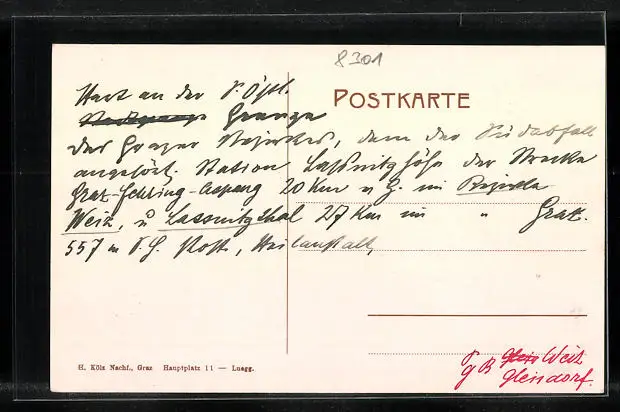 8301
POSTKARTE
Hart an der S. östl.
Grenze
des Grazer Bezirkes, dem der Südabfall
angehört. Station Laßnitzhöhe der Strecke
Graz-Fehring-Aspang 20 Km u G. im Bezirke
Weiz, u Lassnitzthal 27 Km im " Graz.
557 m S. H. Post, Heilanstalt,
H. Kölz Nachf., Graz Hauptplatz 11 — Luegg.
G B Weiz
Gleisdorf.